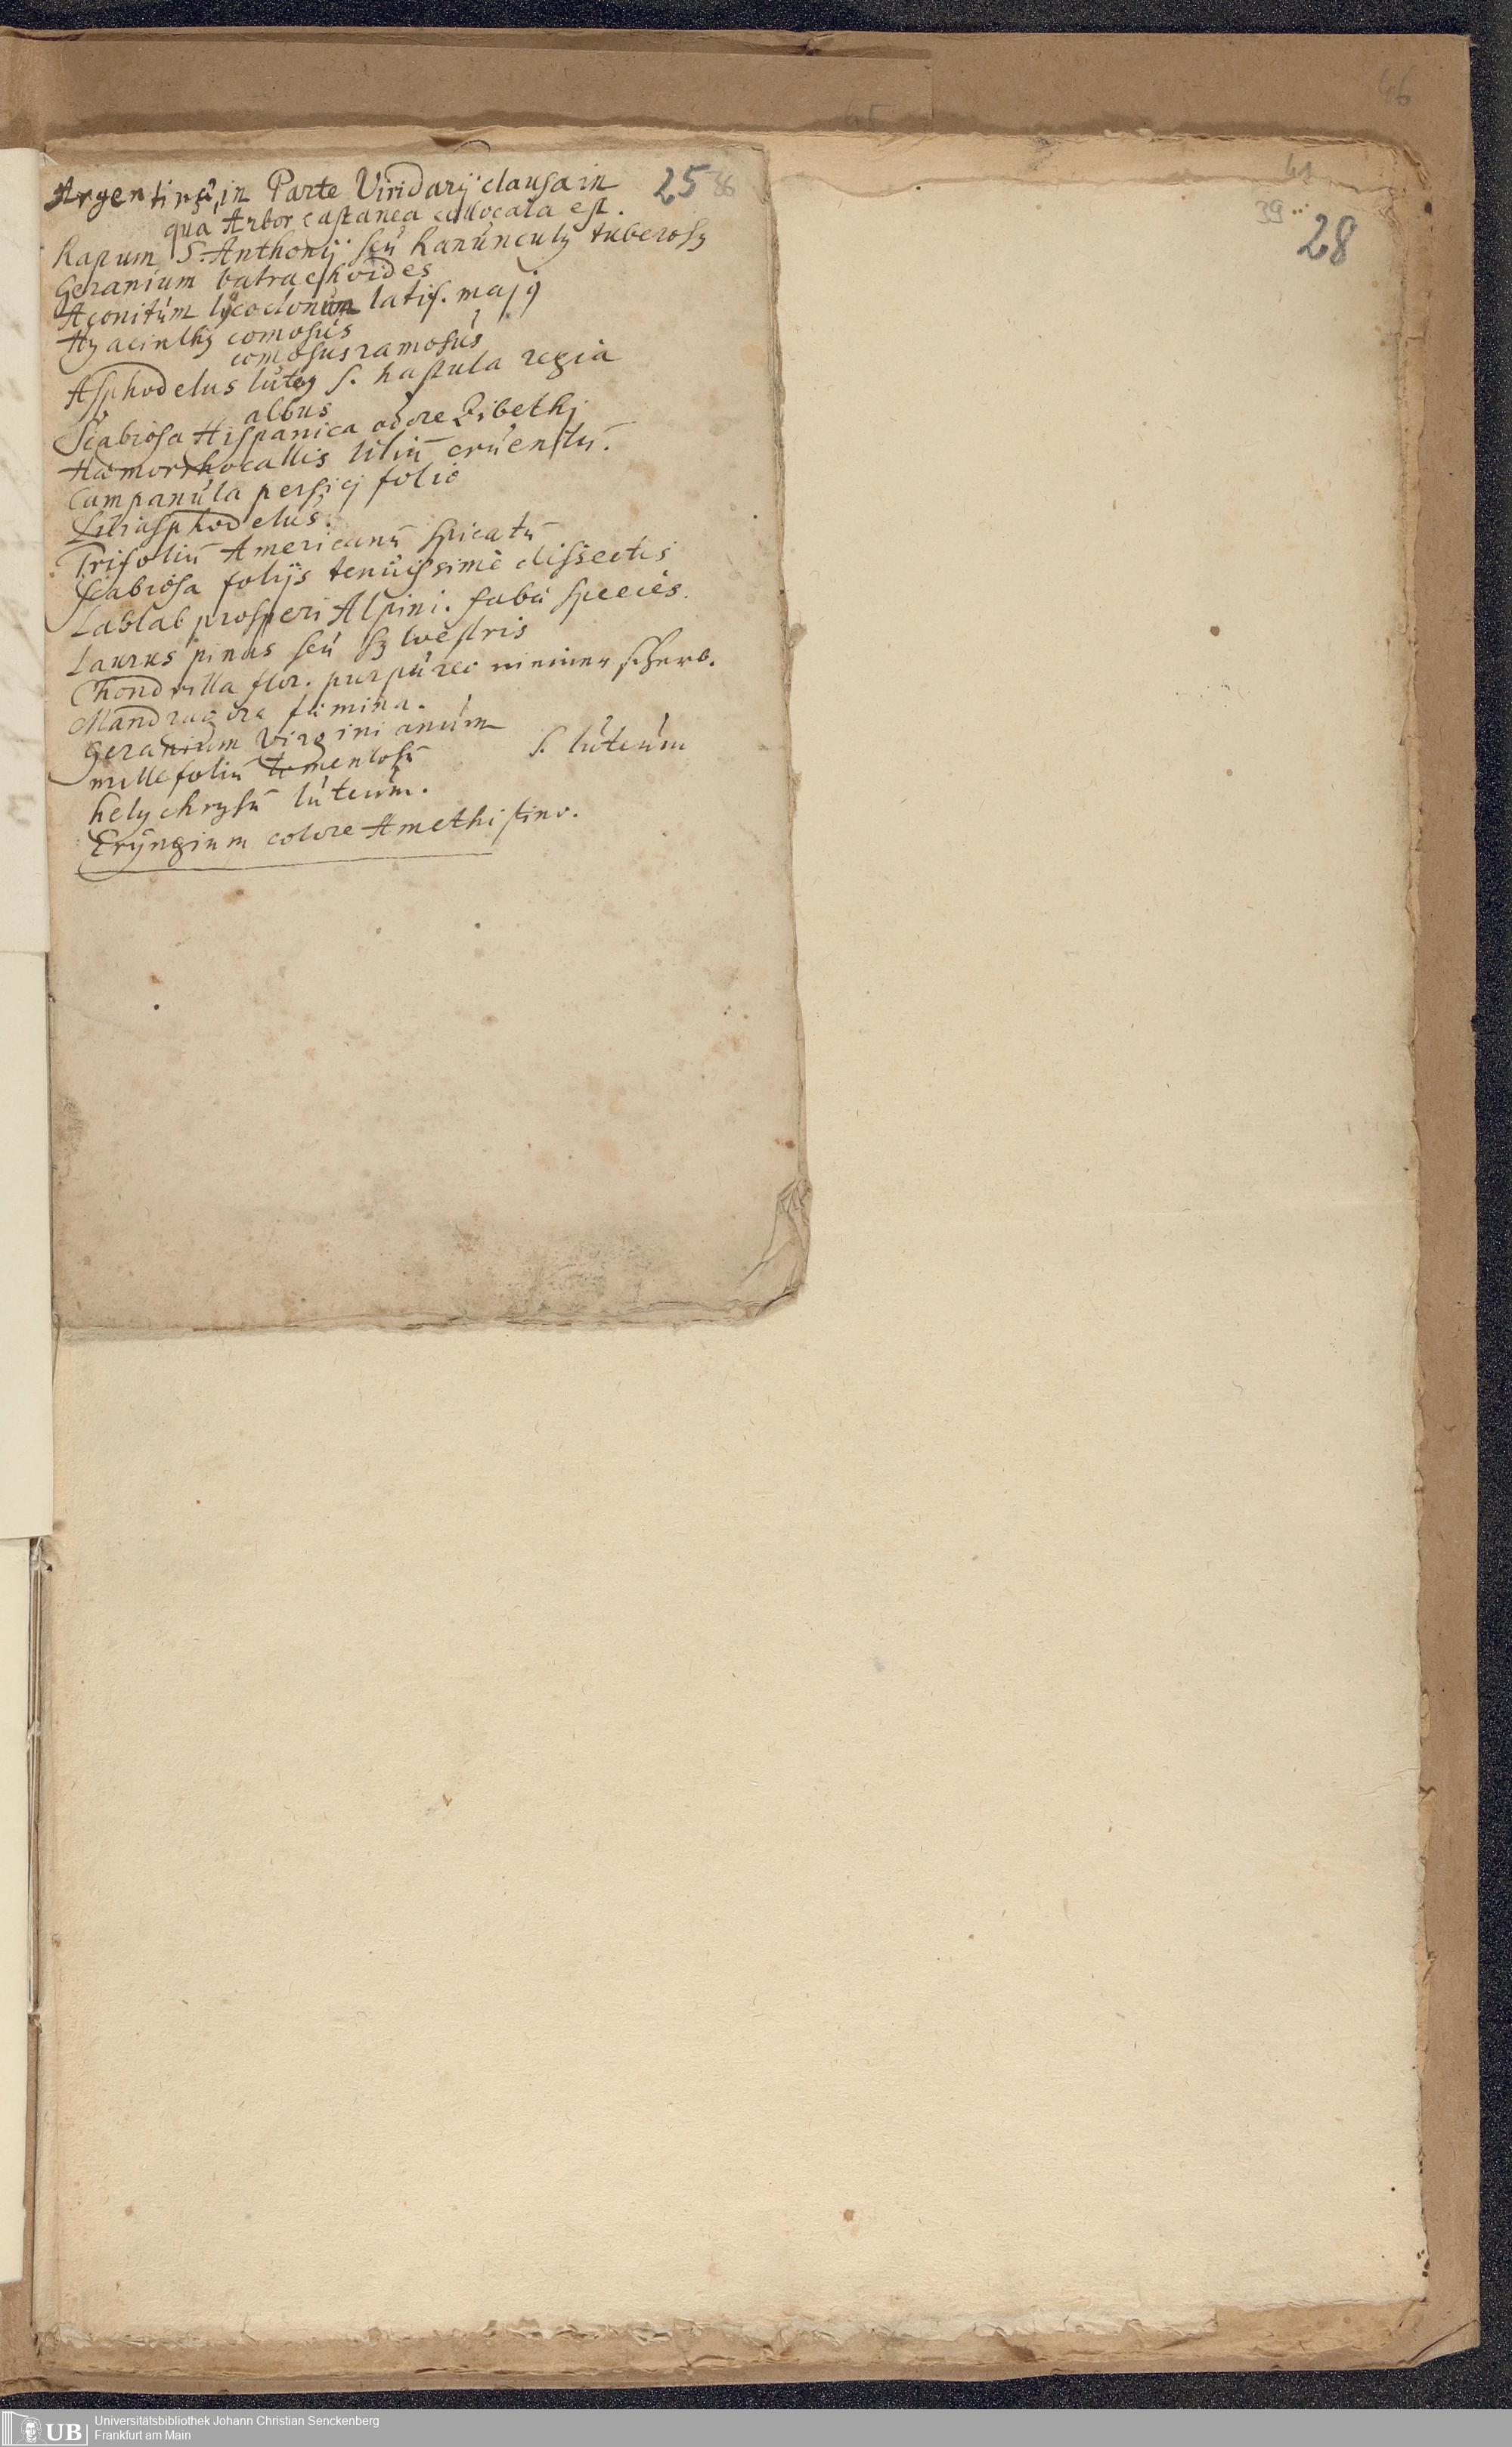 46
45
41
39
28
25 86
Argentinæ, in Parte Viridarÿ clausa in
qua Arbor castanea collocata est.
Rapum S. Anthonÿ seu Ranunculꝰ tuberosꝰ
Geranium batrachoides
Aconitum lÿcoctonum latif. majꝰ
Hyacinthꝰ comosus
comosus ramosus
Asphodelus luteꝰ s. hastula regia
albus
Scabiosa Hispanica odore Zibethi
Hæmorrhocallis liliū cruentū.
Campanula persici folio
Liliasphodelus.
Trifoliū Americanū spicatū
Scabiosa folijs tenuissimè dissectis
Lablab prosperi Alpini. fabæ species.
Laurus pinus seu sylvestris
Chondrilla flor. purpureo
Mandragora fæmina.
Geranium virginianum
millefoliū tomentosū s. luteum
helychrysū luteum.
Erÿngium colore Amethistino.
UB
Universitätsbibliothek Johann Christian Senckenberg
Frankfurt am Main